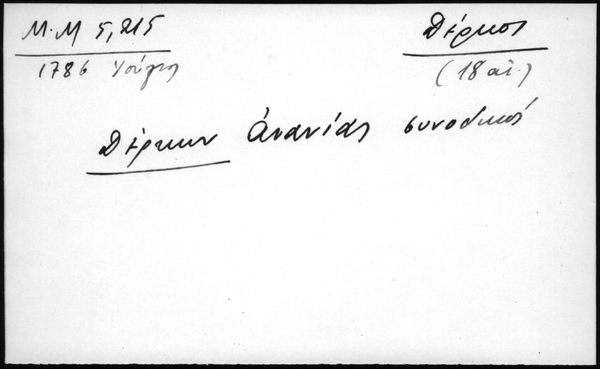 Μ.Μ 5,215
Δέρκοι
1786 Ἰούλιος
(18 αἰ.)
Δέρκων Ἀνανίας συνοδικός